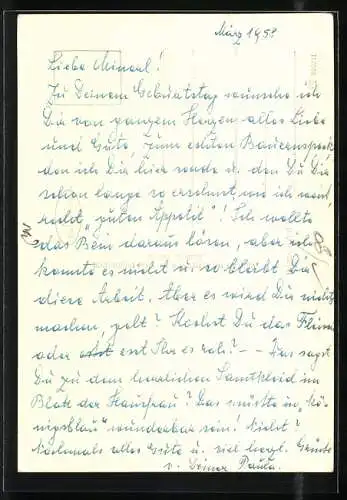 März 1958
Liebe Minerl!
Zu Deinem Geburtstag wünsche ich
Dir von ganzem Herzen alles Liebe
und Gute, zum echten Bauernspeck
den ich Dir hier sende u. den Du Dir
schon lange so ersehnst, und ich
recht "guten Appetit"! Ich wollte
das Bein daraus lösen, aber ich
konnte es nicht u. so bleibt Dir
diese Arbeit. Aber es wird Dir nichts
machen, gelt? Kochst Du das
oder esst Ihr es roh? – – Was sagst
Du zu dem herrlichen Samtkleid im
Blatt der Hausfrau? Das müsste in "kö-
nigsblau" wunderbar sein! Nicht?
Nochmals alles Gute u. viel herzl. Grüsse
v. Deiner Paula.